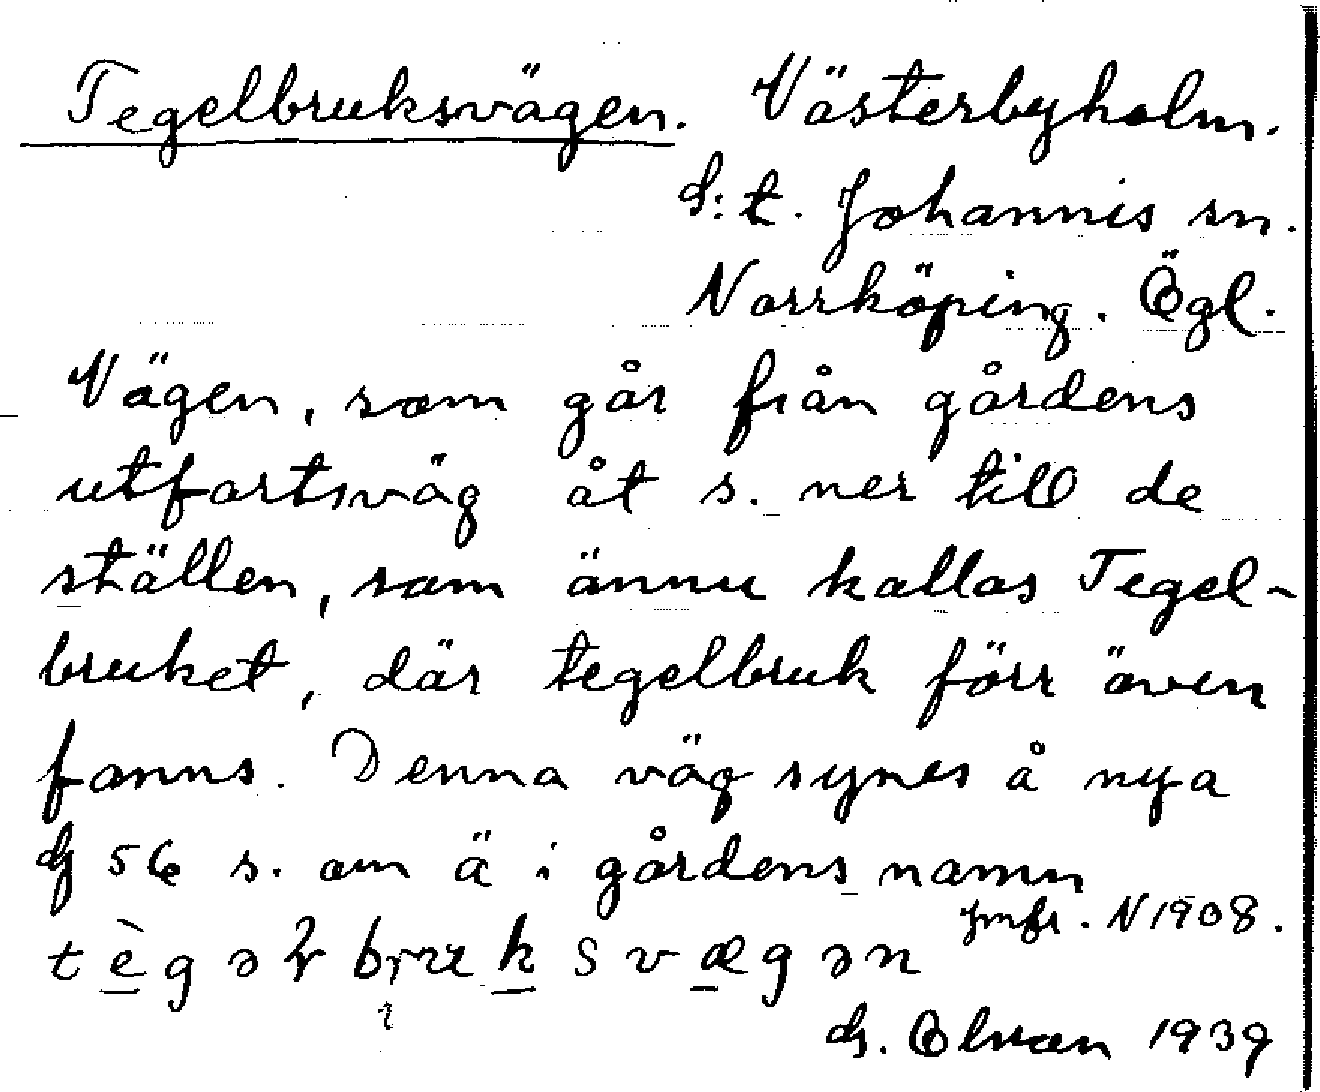 Tegelbruksvägen. Västerbyholm.
S:t. Johannis sn.
Norrköping. Ögl.
Vägen, som går från gårdens
utfartsväg åt s. ner till de
ställen, som ännu kallas Tegel-
bruket, där tegelbruk förr även
fanns. Denna väg synes å nya
56 s. om ä i gårdens namn
Jmfr. N 1908.
1939